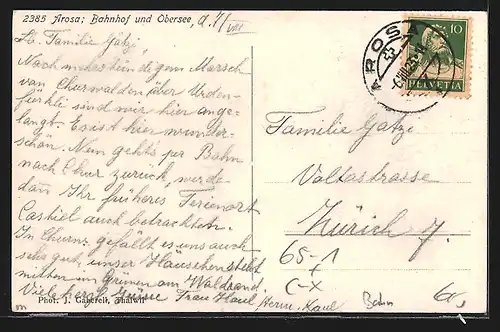 2385 Arosa; Bahnhof und Obersee, d. 7/VIII
Lb. Familie Gatze,
Nach mehrstündigem Marsch
von Churwalden über Urden-
fürkli sind wir hier ange-
langt. Es ist hier wunder-
schön. Nun geht's per Bahn
nach Chur zurück, werde
dañ Ihr früheres Ferienort
Castiel auch betrachten.
In Churw. gefällt es uns auch
sehr gut, unser Häuschen steht
mitten im Grünen am Waldrand.
Viele herzl. Grüsse Frau Kaul Herm. Kaul
Phot. J. Gaberell, Thalwil
AROSA
10
HELVETIA
Familie Gatze
Voltastrasse
Zürich 7.
65-1
+
C-x
Bahn